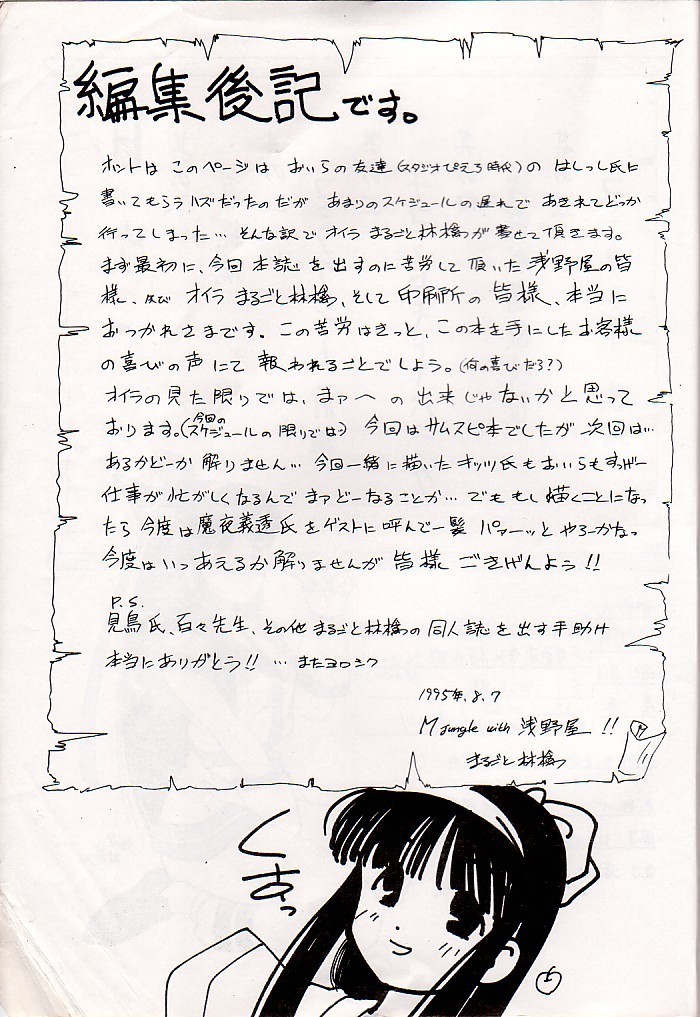 編集後記です。
ホントは このページは おいらの友達(スタジオぴえろ時代)の はしっし氏に
書いてもらうハズだったのだが あまりのスケジュールの遅れで あきれてどっか
行ってしまった… そんな訳で オイラ まるごと林檎っが書せて頂きます。
まず最初に、今回 本誌 を出すのに苦労して頂いた 浅野屋の皆
様、及び オイラ まるごと林檎、そして 印刷所の 皆様、本当に
おつかれさまです。この苦労はきっと、この本を手にしたお客様
の喜びの声にて 報われることでしょう。(何の喜びだろ?)
オイラの見た限りでは、まァへの 出来じゃないかと思って
おります。(今回のスケジュールの限りでは) 今回はサムスピ本でしたが 次回は…
あるかどーか 解りません… 今回一緒に描いたキッツ氏もおいらもすっげー
仕事が忙がしくなるんで まァどーなることか… でももし描くことになっ
たら 今度は魔夜義透氏をゲストに呼んで一髪 パァーッと やろーかなっ
今度はいつあえるか解りませんが 皆様 ごきげんよう!!
P.S.
見鳥氏、百々先生、その他 まるごと林檎っの 同人誌を出す手助け
本当にありがとう!! …またヨロシク
1995年.8.7
M Jungle with 浅野屋 !!
まるごと林檎っ
くすっ